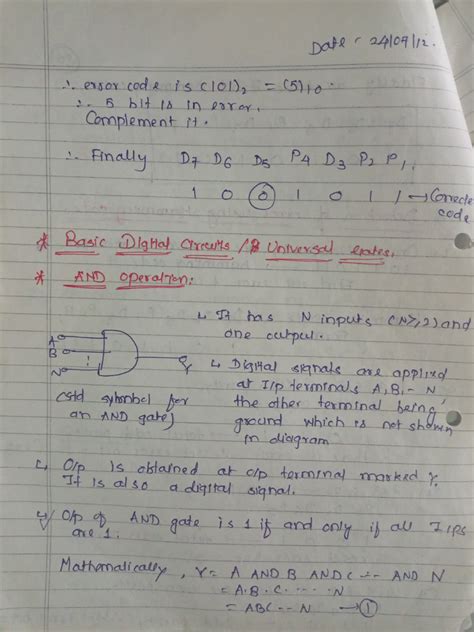 Date: 24/09/12.
∴ error code is (101)₂ = (5)₁₀.
∴ 5 bit is in error.
Complement it.
∴ Finally D7 D6 D5 P4 D3 P2 P1.
1 0 0 1 0 1 1 → Correct
code
* Basic Digital Circuits / Universal Gates.
* AND Operation:
↳ It has N inputs (N≥,2) and
one output.
A
B
N
Y
(Std symbol for
an AND gate)
↳ Digital signals are applied
at I/p terminals A, B, - N
the other terminal being
ground which is not shown
in diagram
↳ O/p is obtained at o/p terminal marked Y.
It is also a digital signal.
↳ O/p of AND gate is 1 if and only if all I/Ps
are 1.
Mathematically, Y = A AND B AND C --- AND N
= A.B.C.....N
= ABC -- N → ①